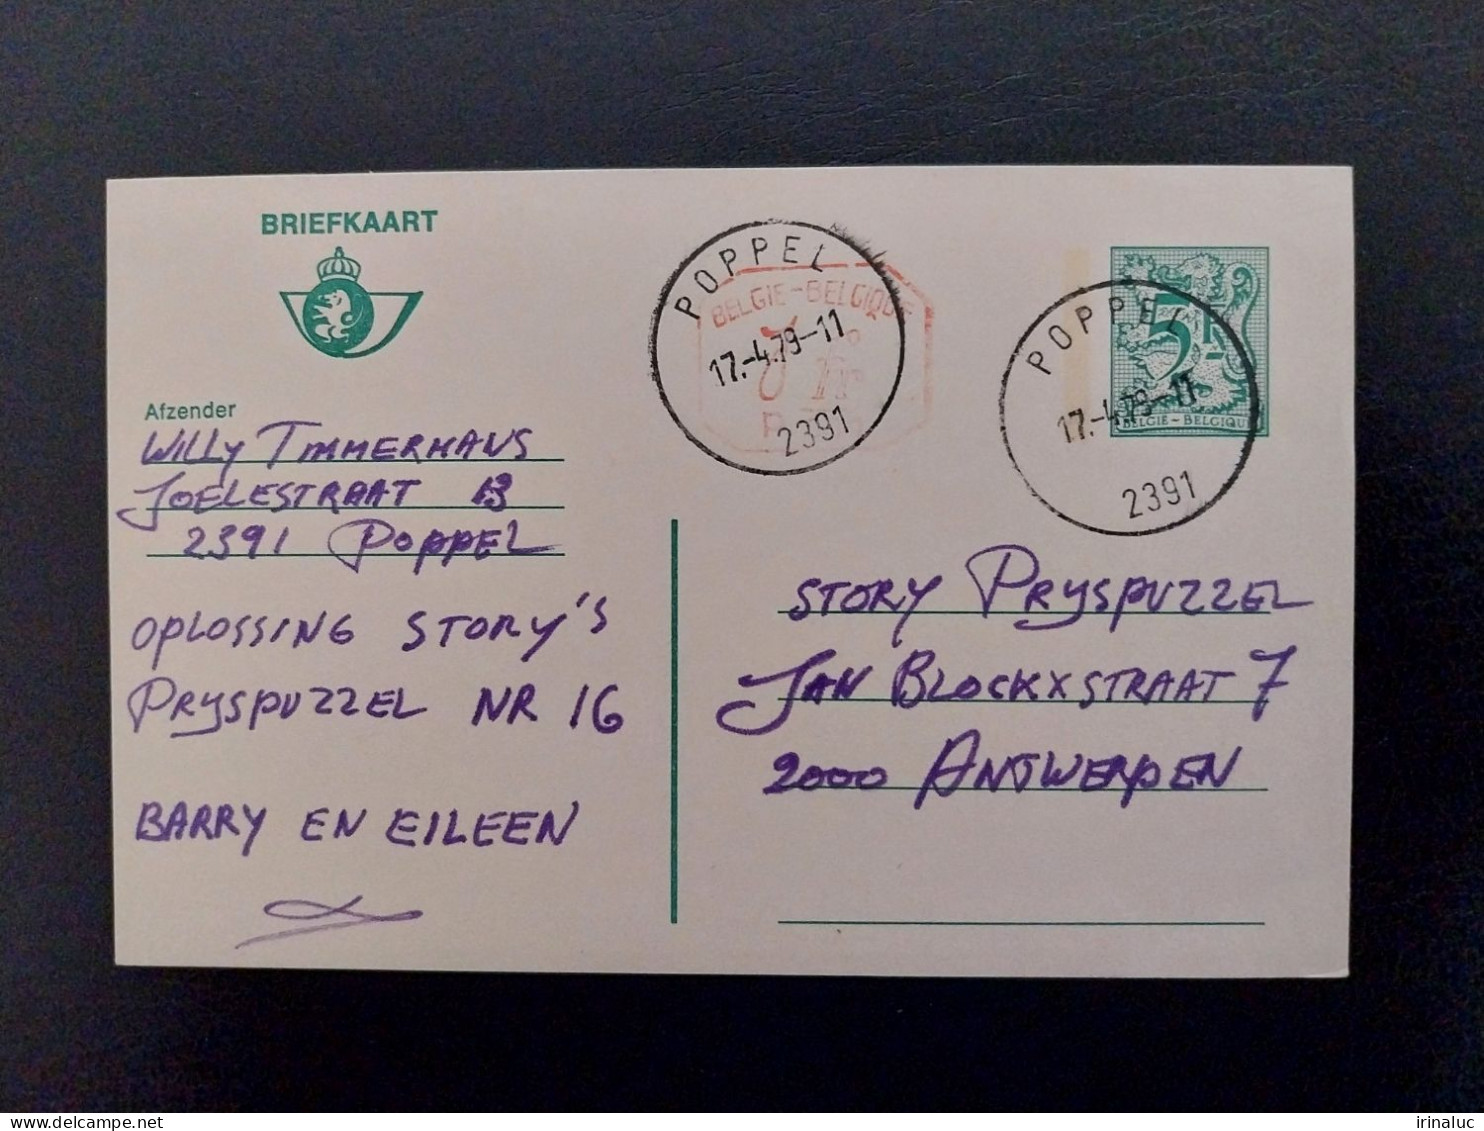 BRIEFKAART
POPPEL
17.-4.79-11
2391
BELGIE-BELGIQUE
POPPEL
17.-4.79-11
2391
5F
BELGIE - BELGIQUE
Afzender
WILLY TIMMERMANS
2391 POPPEL
OPLOSSING STORY'S
PRIJSPUZZEL NR 16
BARRY EN EILEEN
STORY PRIJSPUZZEL
JAN BLOCKXSTRAAT 7
2000 ANTWERPEN
irinaluc